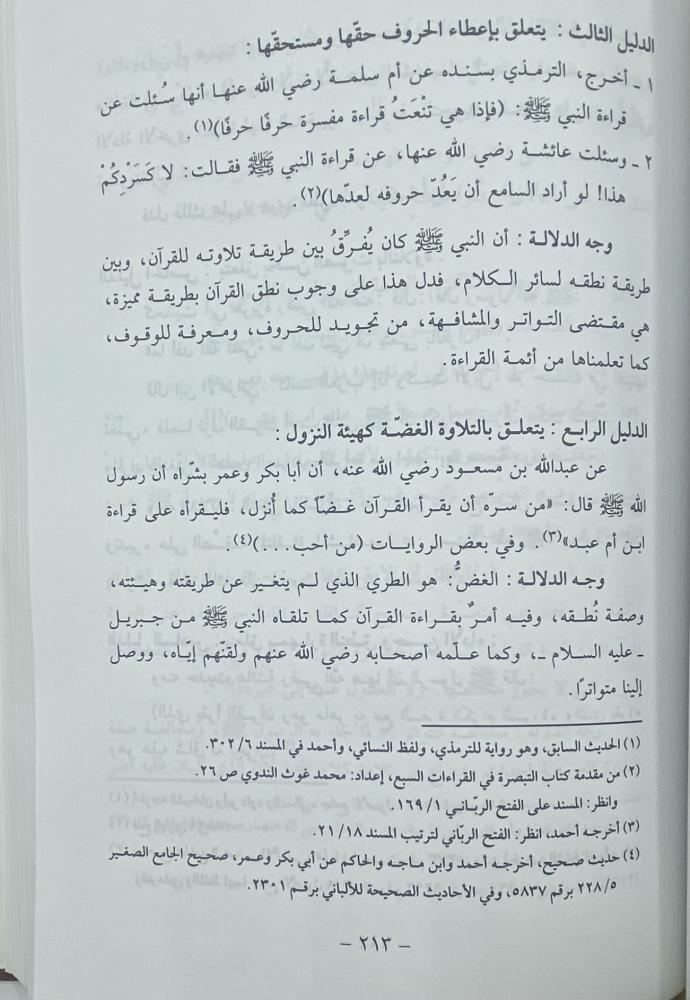 الدليل الثالث : يتعلق بإعطاء الحروف حقّها ومستحقّها :
١ ـ أخرج، الترمذي بسنده عن أم سلمة رضي الله عنها أنها سُئلت عن
قراءة النبي ﷺ: (فإذا هي تنْعَتُ قراءة مفسرة حرفًا حرفًا)(١).
٢ ـ وسئلت عائشة رضي الله عنها، عن قراءة النبي ﷺ فقالت: لا كَسَرْدِكُمْ
هذا! لو أراد السامع أن يَعُدّ حروفه لعدّها)(٢).
وجه الدلالة : أن النبي ﷺ كان يُفرِّقُ بين طريقة تلاوته للقرآن، وبين
طريقة نطقه لسائر الكلام، فدل هذا على وجوب نطق القرآن بطريقة مميزة،
هي مقتضى التواتر والمشافهة، من تجويد للحروف، ومعرفة للوقوف،
كما تعلمناها من أئمة القراءة.
الدليل الرابع : يتعلق بالتلاوة الغضّة كهيئة النزول :
عن عبدالله بن مسعود رضي الله عنه، أن أبا بكر وعمر بشّراه أن رسول
الله ﷺ قال: «من سرّه أن يقرأ القرآن غضاً كما أُنزل، فليقرأه على قراءة
ابن أم عبد»(٣). وفي بعض الروايات (من أحب...)(٤).
وجه الدلالة : الغضُّ: هو الطري الذي لم يتغير عن طريقته وهيئته،
وصفة نُطقه، وفيه أمرٌ بقراءة القرآن كما تلقاه النبي ﷺ من جبريل
ـ عليه السلام ـ، وكما علّمه أصحابه رضي الله عنهم ولقنّهم إيّاه، ووصل
إلينا متواترًا.
(١) الحديث السابق، وهو رواية للترمذي، ولفظ النسائي، وأحمد في المسند ٣٠٢/٦.
(٢) من مقدمة كتاب التبصرة في القراءات السبع، إعداد: محمد غوث الندوي ص ٢٦.
وانظر: المسند على الفتح الربّاني ١٦٩/١.
(٣) أخرجه أحمد، انظر: الفتح الربّاني لترتيب المسند ٢١/١٨.
(٤) حديث صحيح، أخرجه أحمد وابن ماجه والحاكم عن أبي بكر وعمر، صحيح الجامع الصغير
٢٢٨/٥ برقم ٥٨٣٧، وفي الأحاديث الصحيحة للألباني برقم ٢٣٠١.
- ٢١٣ -